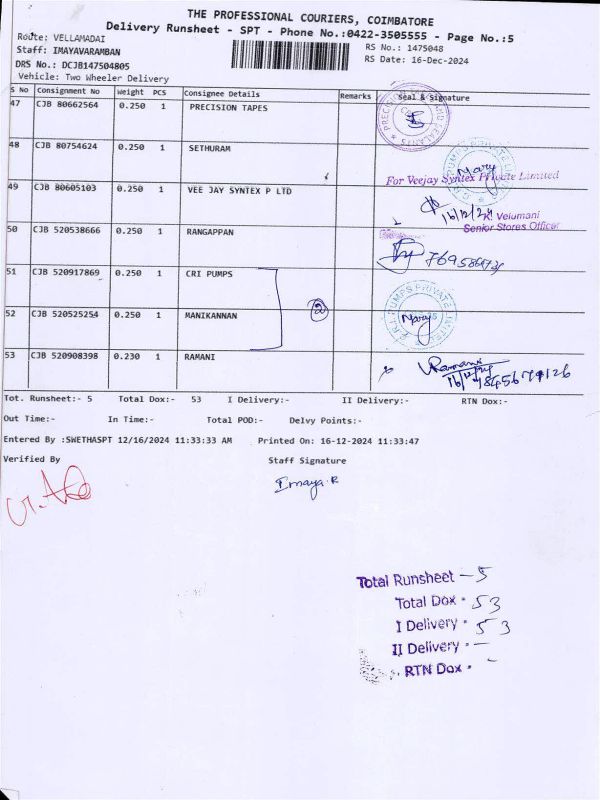 THE PROFESSIONAL COURIERS, COIMBATORE
Delivery Runsheet - SPT - Phone No.:0422-3505555 - Page No.:5
Route: VELLAMADAI
Staff: IMAYAVARAMBAN RS No.: 1475048
DRS No.: DCJB147504805 RS Date: 16-Dec-2024
Vehicle: Two Wheeler Delivery
S No Consignment No Weight PCS Consignee Details Remarks Seal & Signature
47 CJB 80662564 0.250 1 PRECISION TAPES
48 CJB 80754624 0.250 1 SETHURAM
Mary
For Veejay Syntex Private Limited
49 CJB 80605103 0.250 1 VEE JAY SYNTEX P LTD
16/12/24
K. Velumani
Senior Stores Officer
50 CJB 520538666 0.250 1 RANGAPPAN
51 CJB 520917869 0.250 1 CRI PUMPS
PUMPS PRIVATE LIMITED
2
52 CJB 520525254 0.250 1 MANIKANNAN
Mary
53 CJB 520908398 0.230 1 RAMANI
Ramani
16/12/24
Tot. Runsheet:- 5 Total Dox:- 53 I Delivery:- II Delivery:- RTN Dox:-
Out Time:- In Time:- Total POD:- Delvy Points:-
Entered By :SWETHASPT 12/16/2024 11:33:33 AM Printed On: 16-12-2024 11:33:47
Verified By Staff Signature
Imaya.R
Total Runsheet - 5
Total Dox - 53
I Delivery - 53
II Delivery - -
RTN Dox - -